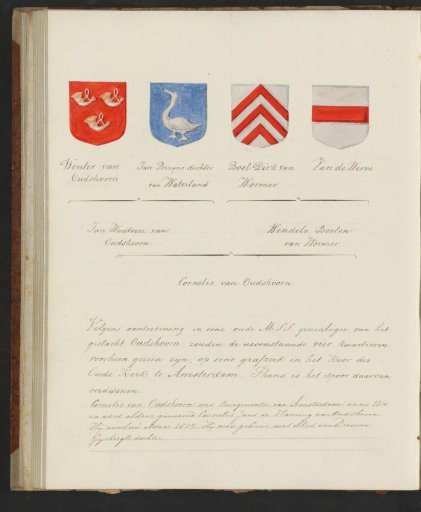 Wouter van Oudshoorn
Jan Persyns dochter van Waterland
Boel Dirk van Wormer
Van de Werve
Jan Wouterse van Oudshoorn
Wendela Boelen van Wormer
Cornelis van Oudshoorn
Volgens aanteekening in eene oude M.S.S. genealogie van het
geslacht Oudshoorn zouden de nevenstaande vier kwartieren
voorheen gezien zijn, op eene grafzerk in het Koor der
Oude Kerk te Amsterdam. Thans is het spoor daarvan
verdwenen.
Cornelis van Oudshoorn was Burgemeester van Amsterdam, anno
en werd aldaar genoemd Cornelis Jans de van Oudshoorn
Hij overleed aldaar Hij was gehuwd met van Diemen
Gijsbregts dochter